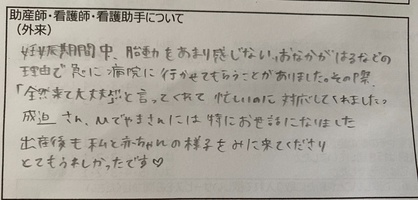 助産師・看護師・看護助手について
(外来)
妊娠期間中、胎動をあまり感じない、おなかがはるなどの
理由で急に病院に行かせてもらうことがありました。その際、
「全然来て大丈夫」と言ってくれて忙しいのに対応してくれました。
成迫さん、ひでやまさんには特にお世話になりました
出産後も私と赤ちゃんの様子をみに来てくださり
とてもうれしかったです♡